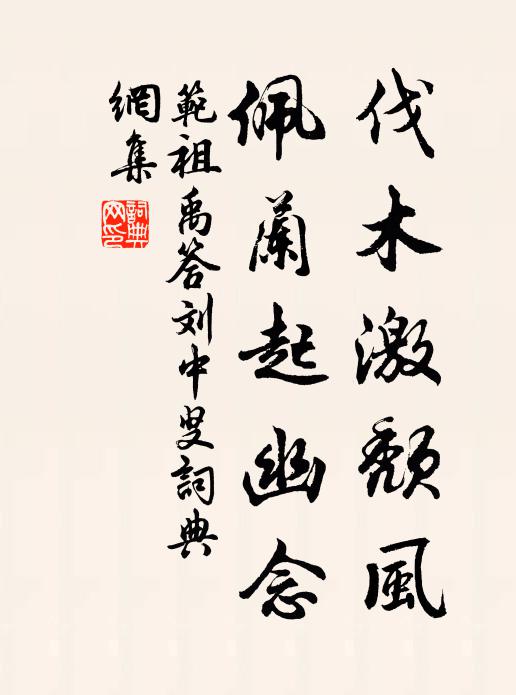 伐木激頹風
佩蘭起幽念
範祖禹答刘中叟詞典
網集
詞典網印